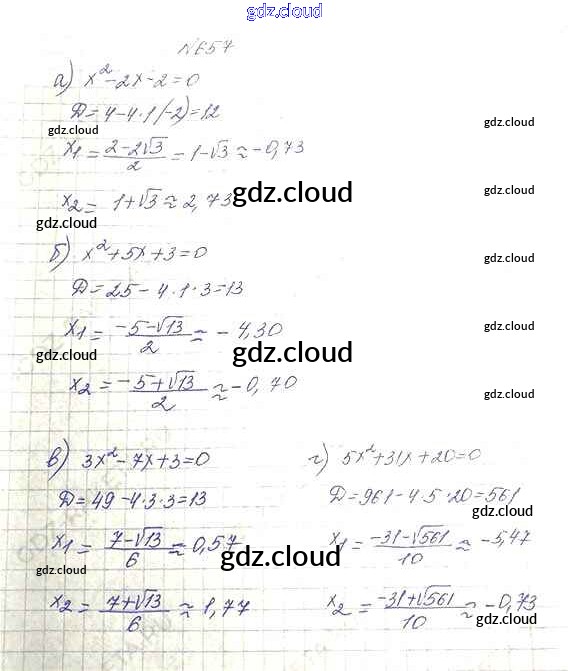 gdz.cloud
№657
а) x²-2x-2=0
Д=4-4·1(-2)=12
gdz.cloud gdz.cloud
x₁=(2-2√3)/2=1-√3≈-0,73
x₂=1+√3≈2,73
gdz.cloud gdz.cloud gdz.cloud
б) x²+5x+3=0
gdz.cloud
Д=25-4·1·3=13
x₁=(-5-√13)/2≈-4,30
gdz.cloud gdz.cloud gdz.cloud
x₂=(-5+√13)/2≈-0,70
gdz.cloud
в) 3x²-7x+3=0
Д=49-4·3·3=13
x₁=(7-√13)/6≈0,57
gdz.cloud gdz.cloud
x₂=(7+√13)/6≈1,77
г) 5x²+31x+20=0
Д=961-4·5·20=561
gdz.cloud
x₁=(-31-√561)/10≈-5,47
gdz.cloud
x₂=(-31+√561)/10≈-0,73
gdz.cloud